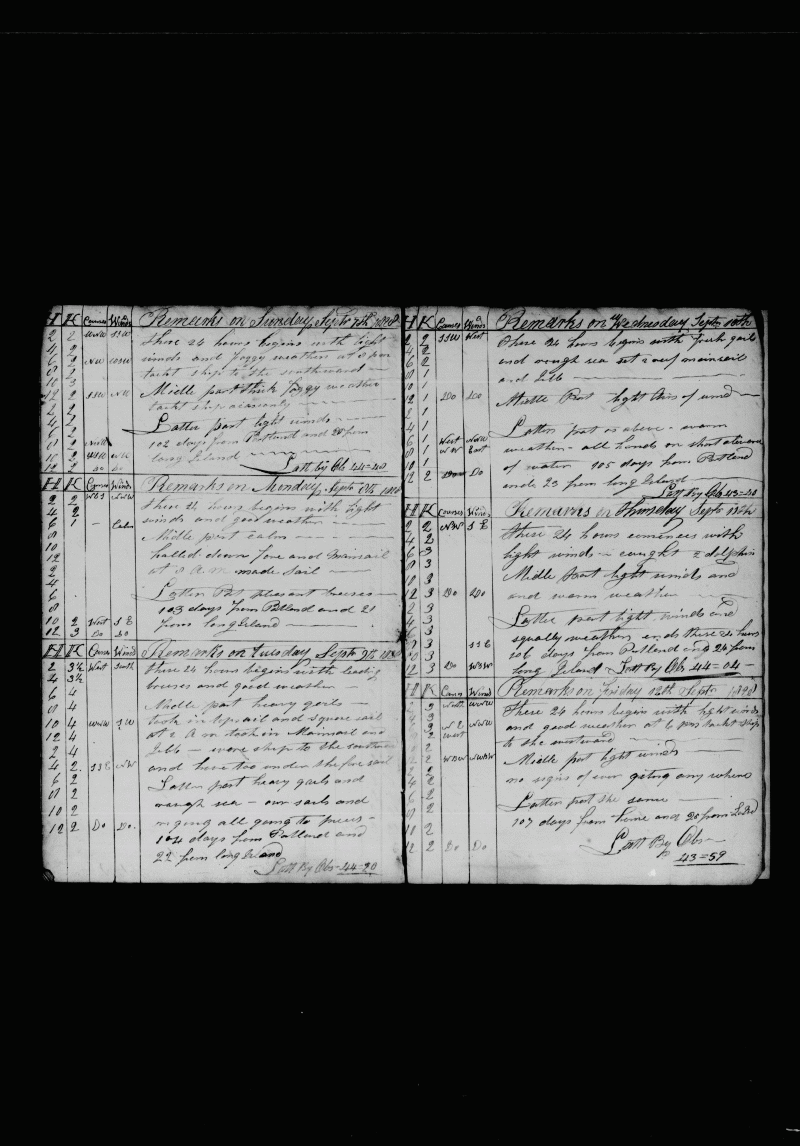 H K Courses Winds Remarks on Sunday Septr 7th
2 2 WNW SSW These 24 hours begins with light
4 2 winds and foggy weather at 8 pm
6 2 NW WSW tackt ship to the southward
8 2
10 3 Midle part thick foggy weather
12 2 SSW NW tackt ship
2 2
4 2 Latter part light winds
6 2 102 days from Portland and 20 from
8 2 long Island
10 2 Latt by Obs 44=40
12 2 do do
H K Courses Winds Remarks on Munday Septr 8th
2 2 WNW These 24 hours begins with light
4 2 winds and good weather
6 1 - Calm Midle part calm
8
10 halled down fore and Mainsail
12 at 8 A m made sail
2
4 Latter Part pleasant breeses
6 103 days from Portland and 21
8 from long Island
10 2 West S E
12 3 Do Do
H K Courses Winds Remarks on Tuesday Septr 9th
2 3½ West South These 24 hours begins with
4 3½ breeses and good weather
6 4
8 4 Midle part heavy gails
10 4 WNW SW took in topsail and square sail
12 4 at 2 A m took in Mainsail and
2 4 Jibb - wore ship to the
4 2 SSE NW and hove too under the fore sail
6 2 Latter part heavy gails and
8 2 rough sea - our sails and
10 2 riging all going to pieces
12 2 Do Do 104 days from Portland and
22 from long Island
Latt By Obs 44=20
H K Courses Winds Remarks on Wednesday Septr 10th
2 2 SSW West These 24 hours begins with fresh gails
4 2 and rough sea set 2 reef mainsail
6 2 and Jibb
8 1
10 1
12 1 Do Do Midle Part light Airs of wind
2 1
4 1 Latter part as above - warm
6 1 West NNW weather - all hands on short alowance
8 1 East of water 105 days from Portland
10 1 and 23 from long Island
12 2 Do Latt By Obs 43=40
H K Courses Winds Remarks on Thursday Septr 11th
2 2 NW S E These 24 hours comences with
4 2 light winds - caught 2 dolphin
6 3
8 3 Midle part light winds and
10 3 and warm weather
12 3 Do Do
2 3
4 3 Latter part light winds and
6 3 squally weather ends these 24 hours
8 3 SSE 106 days from Portland and 24 from
10 3 long Island Latt By Obs 44=04
12 3 Do WSW
H K Courses Winds Remarks on Friday 12th Septr
2 3 North WNW These 24 hours begins with light winds
4 3 and good weather at 6 pm tackt ship
6 2 N E NNW to the westward
8 2 West
10 2 Midle part light winds
12 2 WNW no signs of ever giting any where
4 2
6 2 Latter part the same
8 2 107 days from home and 25 from
10 2
12 2 Do Do Latt By Obs
43=59